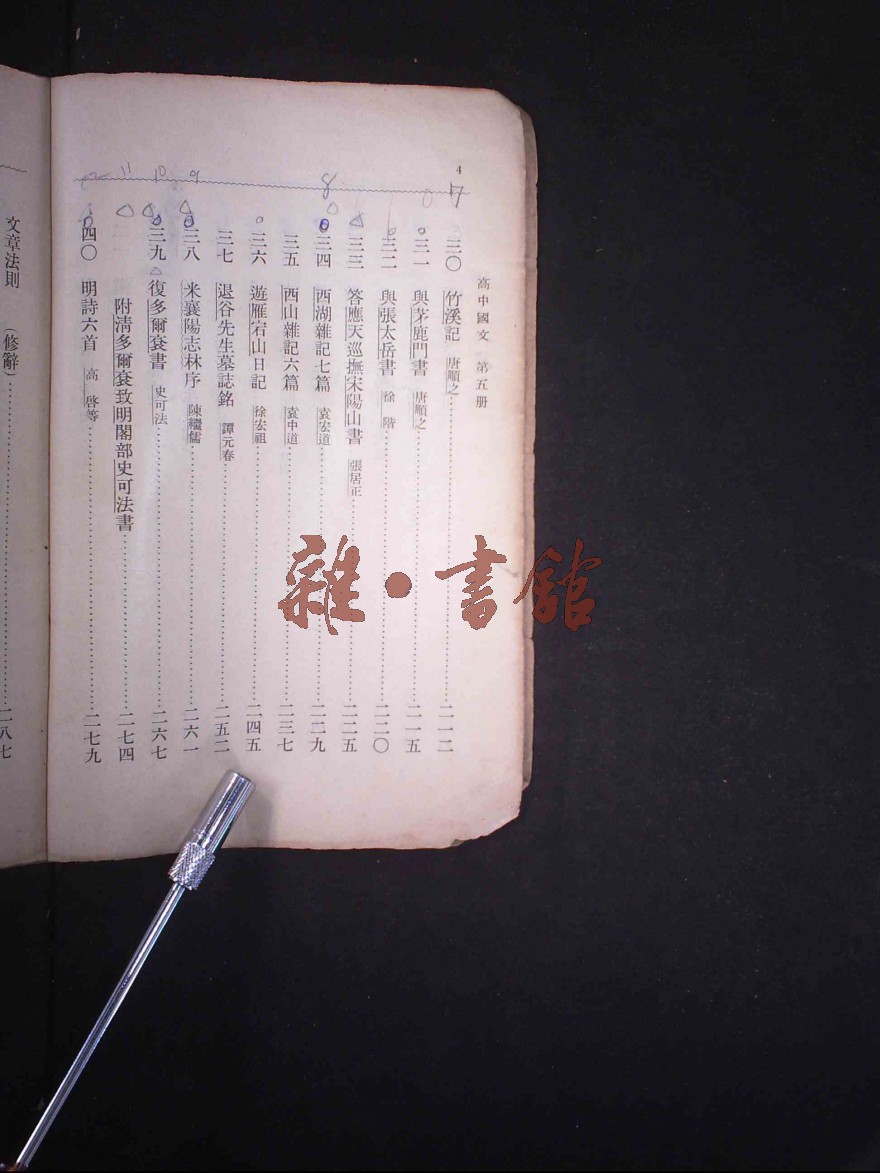 4
高中國文 第五册
三〇 竹溪記 唐順之 二一二
三一 與茅鹿門書 唐順之 二一五
三二 與張太岳書 徐階 二二〇
三三 答應天巡撫宋陽山書 張居正 二二五
三四 西湖雜記七篇 袁宏道 二二九
三五 西山雜記六篇 袁中道 二三七
三六 遊雁宕山日記 徐宏祖 二四五
三七 退谷先生墓誌銘 譚元春 二五二
三八 米襄陽志林序 陳繼儒 二六一
三九 復多爾袞書 史可法 二六七
附清多爾袞致明閣部史可法書 二七四
四〇 明詩六首 高啓等 二七九
文章法則 （修辭） 二八七
17
8
9
10
11
雜·書館